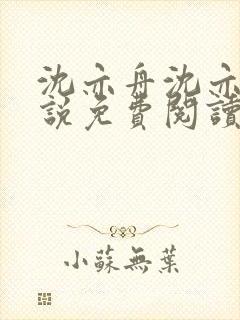 沈亦舟沈亦
說免費閱讀
小蘇無葉